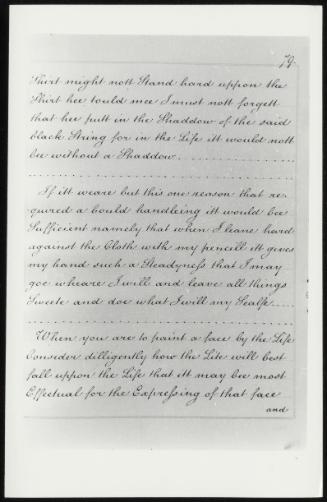 79.
Shirt might nott Stand hard uppon the
Shirt hee tould mee I must nott forgett
that hee putt in the Shaddow of the said
black String for in the Life itt would nott
bee without a Shaddow.
If itt weare but this one reason that re-
quired a bould handleing itt would bee
Sufficient namely that when I leane hard
against the Cloth with my pencill itt gives
my hand such a Steadyness that I may
goe wheare I will and leave all things
Sweete and doe what I will my Sealfe.
When you are to paint a face by the Life
Consider dilligently how the Lite will best
fall uppon the Life that itt may bee most
Effectual for the Expressing of that face
and